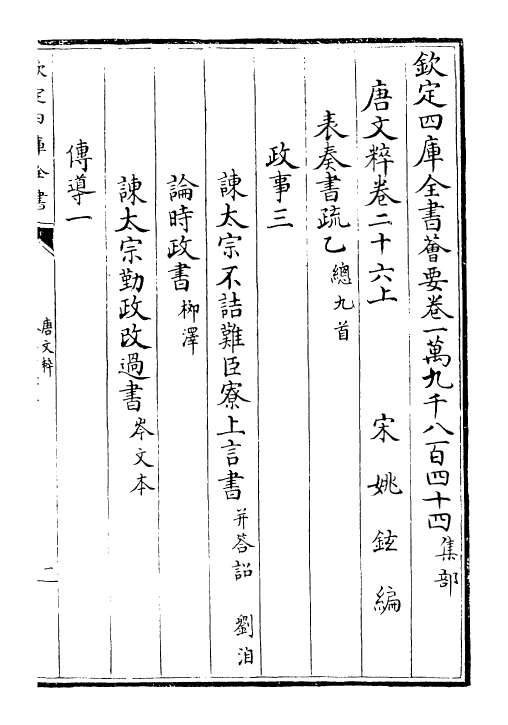 欽定四庫全書薈要卷一萬九千八百四十四集部
唐文粹卷二十六上 宋姚鉉編
表奏書疏乙總九首
政事三
諫太宗不詰難臣寮上言書并答詔 劉洎
論時政書柳澤
諫太宗勤政改過書岑文本
傳導一
欽定四庫全書
唐文粹